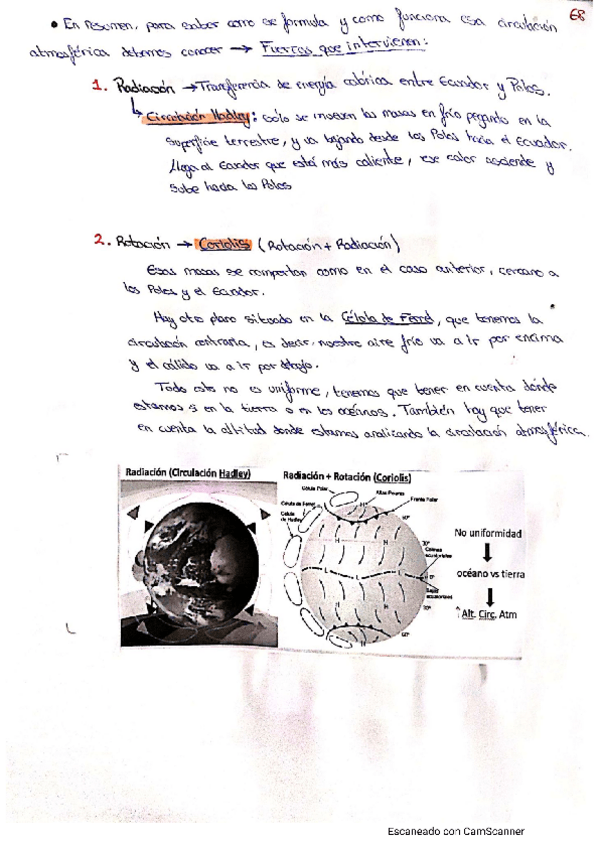 68
• En resumen, para saber como se formula y como funciona esa circulación
atmosférica debemos conocer → Fuerzas que intervienen:
1. Radiación → Transferencia de energía calórica entre Ecuador y Polos.
↳ Circulación Hadley: sólo se mueven las masas en frío pegando en la
superficie terrestre, y va bajando desde los Polos hacia el Ecuador.
Llega al Ecuador que está más caliente, ese calor asciende y
sube hacia los Polos
2. Rotación → Coriolis (Rotación + Radiación)
Esas masas se comportan como en el caso anterior, cercano a
los Polos y el Ecuador.
Hay otro plano situado en la Célula de Ferrel, que tenemos la
circulación contraria, es decir, nuestro aire frío va a ir por encima
y el cálido va a ir por debajo.
Todo esto no es uniforme, tenemos que tener en cuenta dónde
estamos si en la tierra o en los océanos. También hay que tener
en cuenta la altitud donde estamos analizando la circulación atmosférica.
Radiación (Circulación Hadley)
Radiación + Rotación (Coriolis)
Célula Polar
Altas Polares
Frente Polar
Célula de Ferrel
Célula de Hadley
H
60°
30°
H H
Calmas ecuatoriales
L L L
0°
Bajas ecuatoriales
H H
30°
60°
H
No uniformidad
océano vs tierra
↑Alt. Circ. Atm
Escaneado con CamScanner